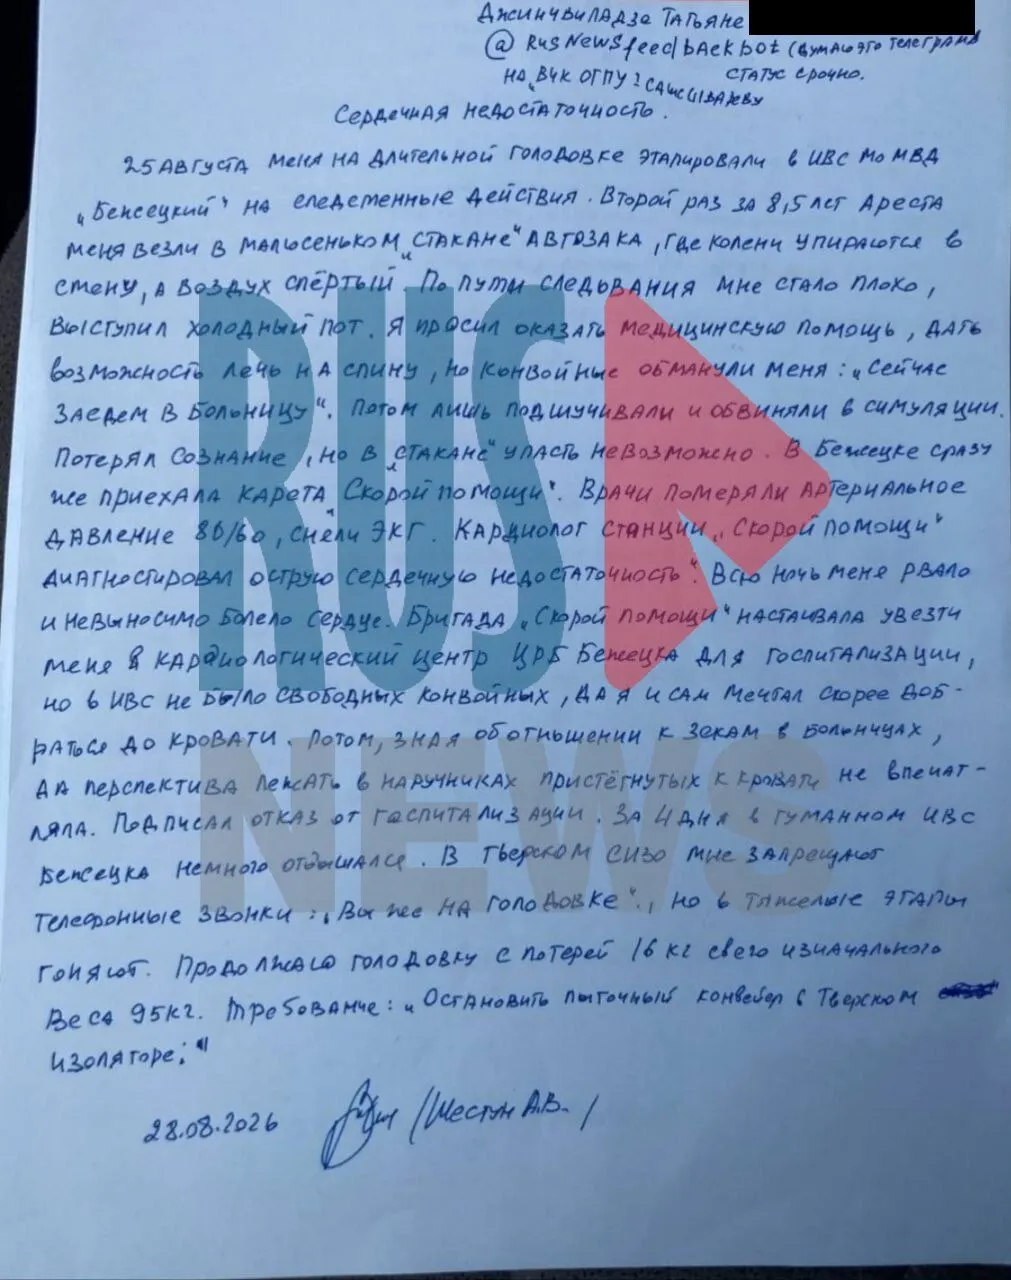 Джинчвиладзе Татьяне
@ RusNewsfeedbaekbot (думаю это телеграмм
статус срочно.
на "ВЧК ОГПУ"
Сердечная недостаточность.
25 августа меня на длительной голодовке этапировали в ИВС МО МВД
„Бежецкий" на следственные действия. Второй раз за 8,5 лет ареста
меня везли в малюсеньком „стакане" автозака, где колени упираются в
стену, а воздух спёртый. По пути следования мне стало плохо,
выступил холодный пот. Я просил оказать медицинскую помощь, дать
возможность лечь на спину, но конвойные обманули меня: „Сейчас
заедем в больницу". Потом лишь подшучивали и обвиняли в симуляции.
Потерял сознание, но в „стакане" упасть невозможно. В Бежецке сразу
же приехала карета „Скорой помощи". Врачи померяли артериальное
давление 80/60, сняли ЭКГ. Кардиолог станции „Скорой помощи"
диагностировал острую сердечную недостаточность". Всю ночь меня рвало
и невыносимо болело сердце. Бригада „Скорой помощи" настаивала увезти
меня в кардиологический центр ЦРБ Бежецка для госпитализации,
но в ИВС не было свободных конвойных, да я и сам мечтал скорее доб-
раться до кровати. Потом, зная об отношении к зекам в больницах,
да перспектива лежать в наручниках пристёгнутых к кровати не впечат-
ляла. Подписал отказ от госпитализации. За 4 дня в гуманном ИВС
Бежецка немного отдышался. В Тверском СИЗО мне запрещают
телефонные звонки: „Вы же на голодовке"., но в тяжелые этапы
гоняют. Продолжаю голодовку с потерей 16 кг свего изначального
веса 95кг. Требование: „Остановить пыточный конвейер в Тверском
изоляторе;"
28.08.2026 /Шестун А.В./
RUS
NEWS